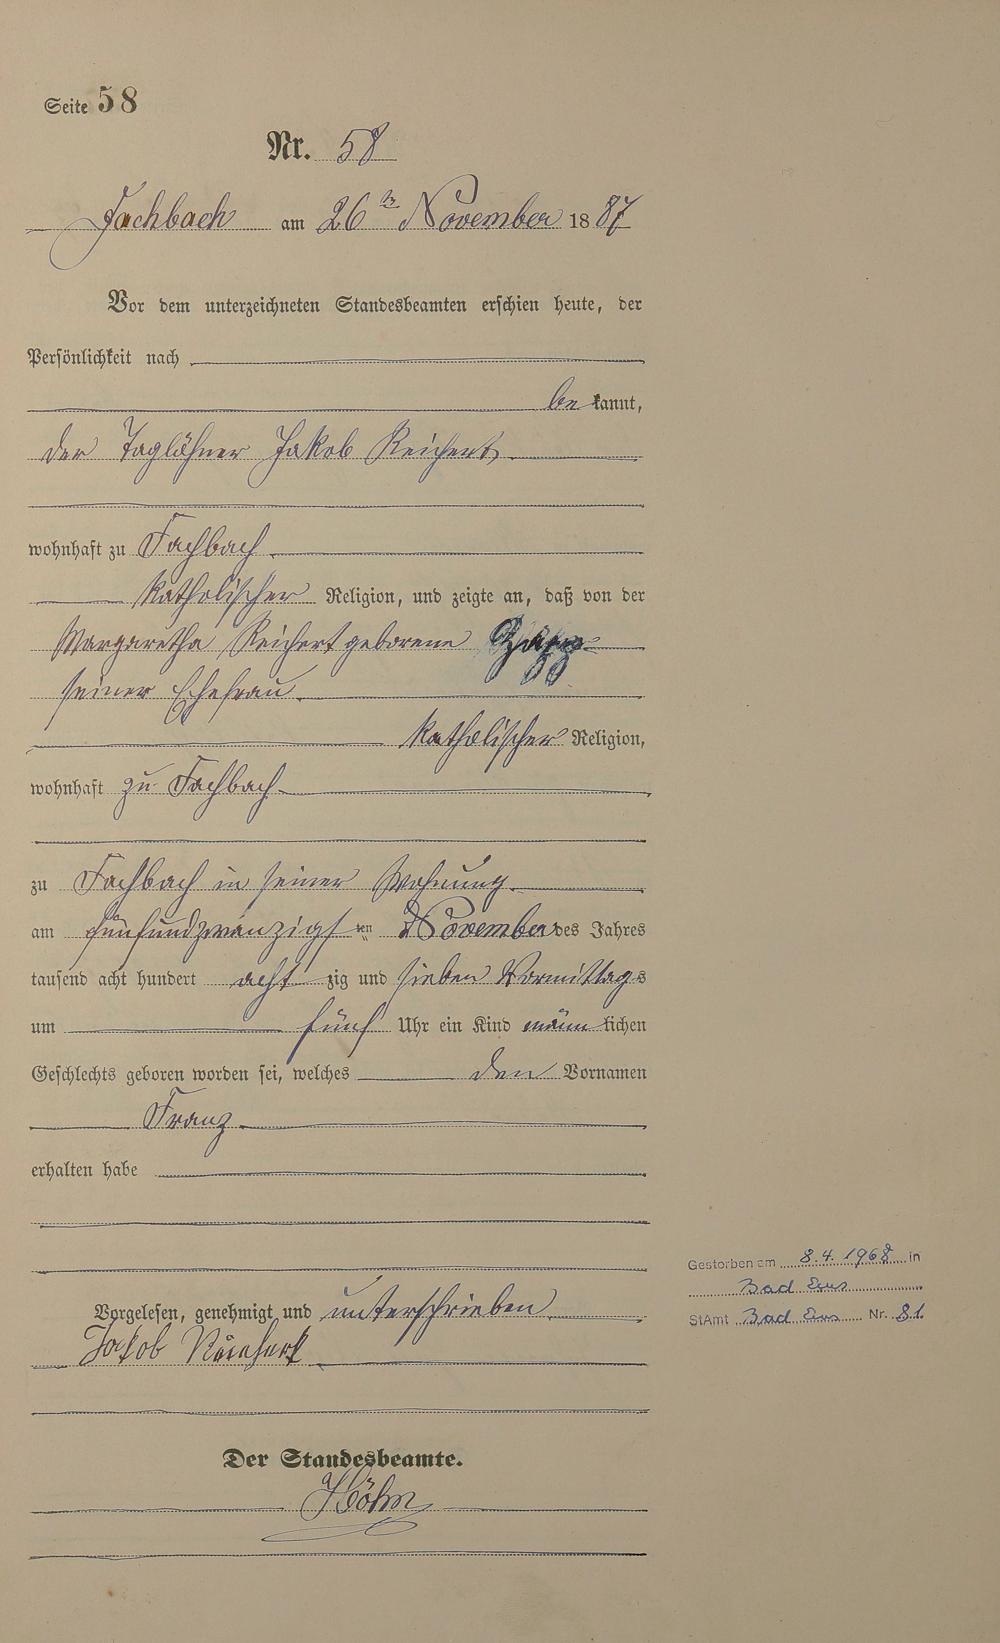 Seite 58
Nr. 58
Fachbach am 26ten November 1887
Vor dem unterzeichneten Standesbeamten erschien heute, der
Persönlichkeit nach
bekannt,
der Taglöhner Jakob Reichert
wohnhaft zu Fachbach
katholischer Religion, und zeigte an, daß von der
Margaretha Reichert geborene
seiner Ehefrau
katholischer Religion,
wohnhaft zu Fachbach
zu Fachbach in seiner Wohnung
am fünfundzwanzigsten November des Jahres
tausend acht hundert achtzig und sieben Vormittags
um fünf Uhr ein Kind männlichen
Geschlechts geboren worden sei, welches den Vornamen
Franz
erhalten habe
Vorgelesen, genehmigt und unterschrieben
Jakob Reichert
Der Standesbeamte.
Höhn
Gestorben am 8.4.1968 in
Bad Ems
StAmt Bad Ems Nr. 81